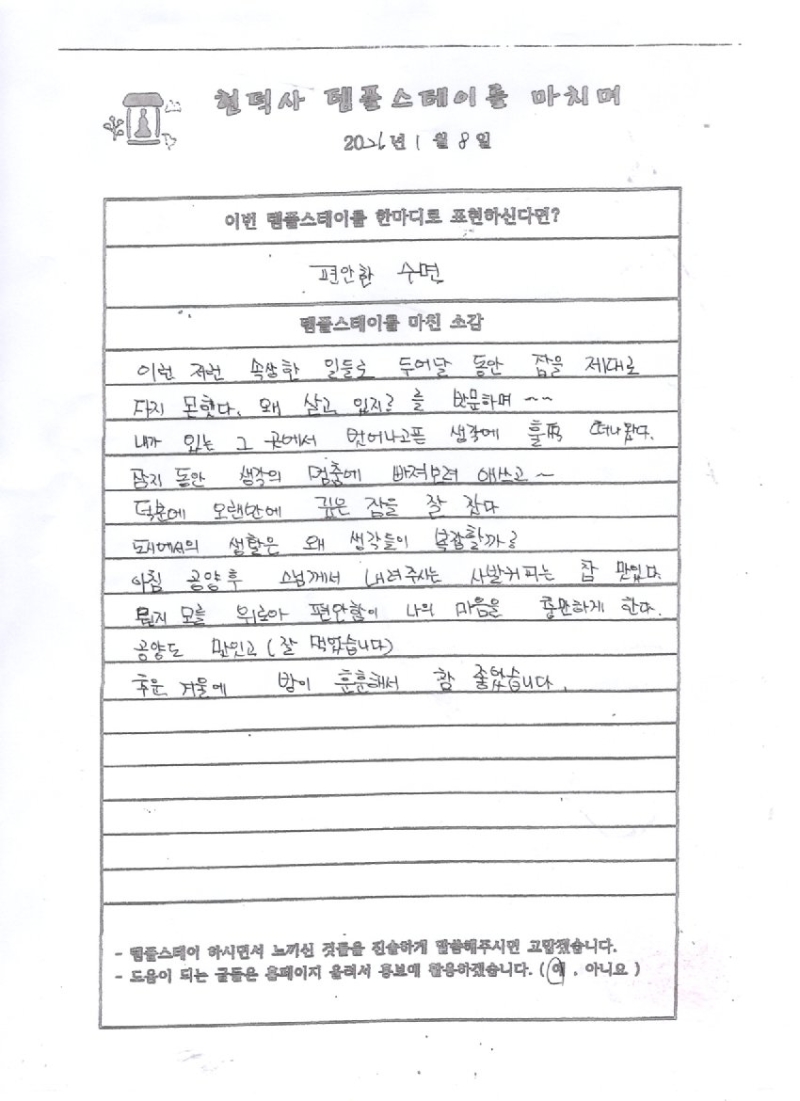 현덕사 템플스테이를 마치며
2026년 1월 8일
이번 템플스테이를 한마디로 표현하신다면?
편안한 수면
템플스테이를 마친 소감
이런 저런 속상한 일들로 두어달 동안 잠을 제대로
자지 못했다. 왜 살고 있지?를 반문하며 ~~
내가 있는 그 곳에서 벗어나고픈 생각에 훌쩍 떠나왔다.
잠지 동안 생각의 멈춤에 빠져보려 애쓰고~
덕분에 오랜만에 깊은 잠을 잘 잤다
도시에서의 생활은 왜 생각들이 복잡할까?
아침 공양후 스님께서 내려주시는 사발커피는 참 맛있다.
뭔지 모를 위로아 편안함이 나의 마음을 충만하게 한다.
공양도 맛있고 (잘 먹었습니다)
추운 겨울에 방이 훈훈해서 참 좋았습니다.
- 템플스테이 하시면서 느끼신 것들을 진솔하게 말씀해주시면 고맙겠습니다.
- 도움이 되는 글들은 홈페이지 올려서 홍보에 활용하겠습니다. ( 예 , 아니요 )